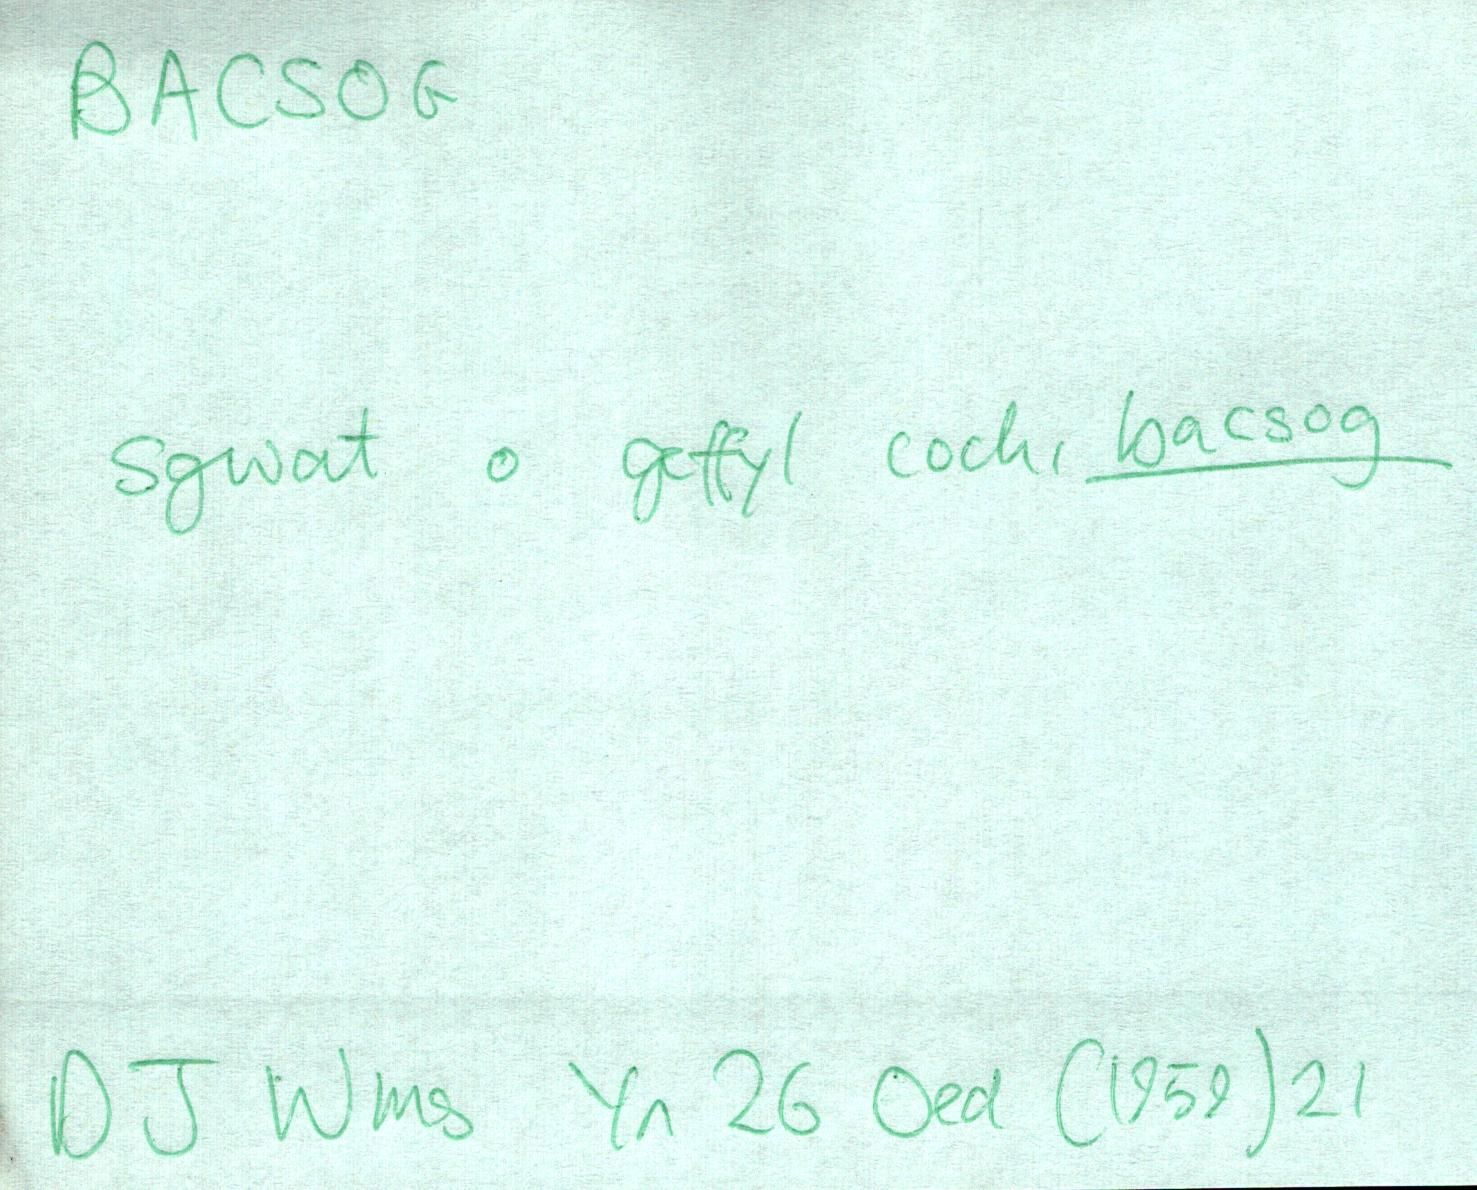 BACSOG
sgwat o geffyl coch, bacsog
D J Wms Yn 26 Oed (1959) 21